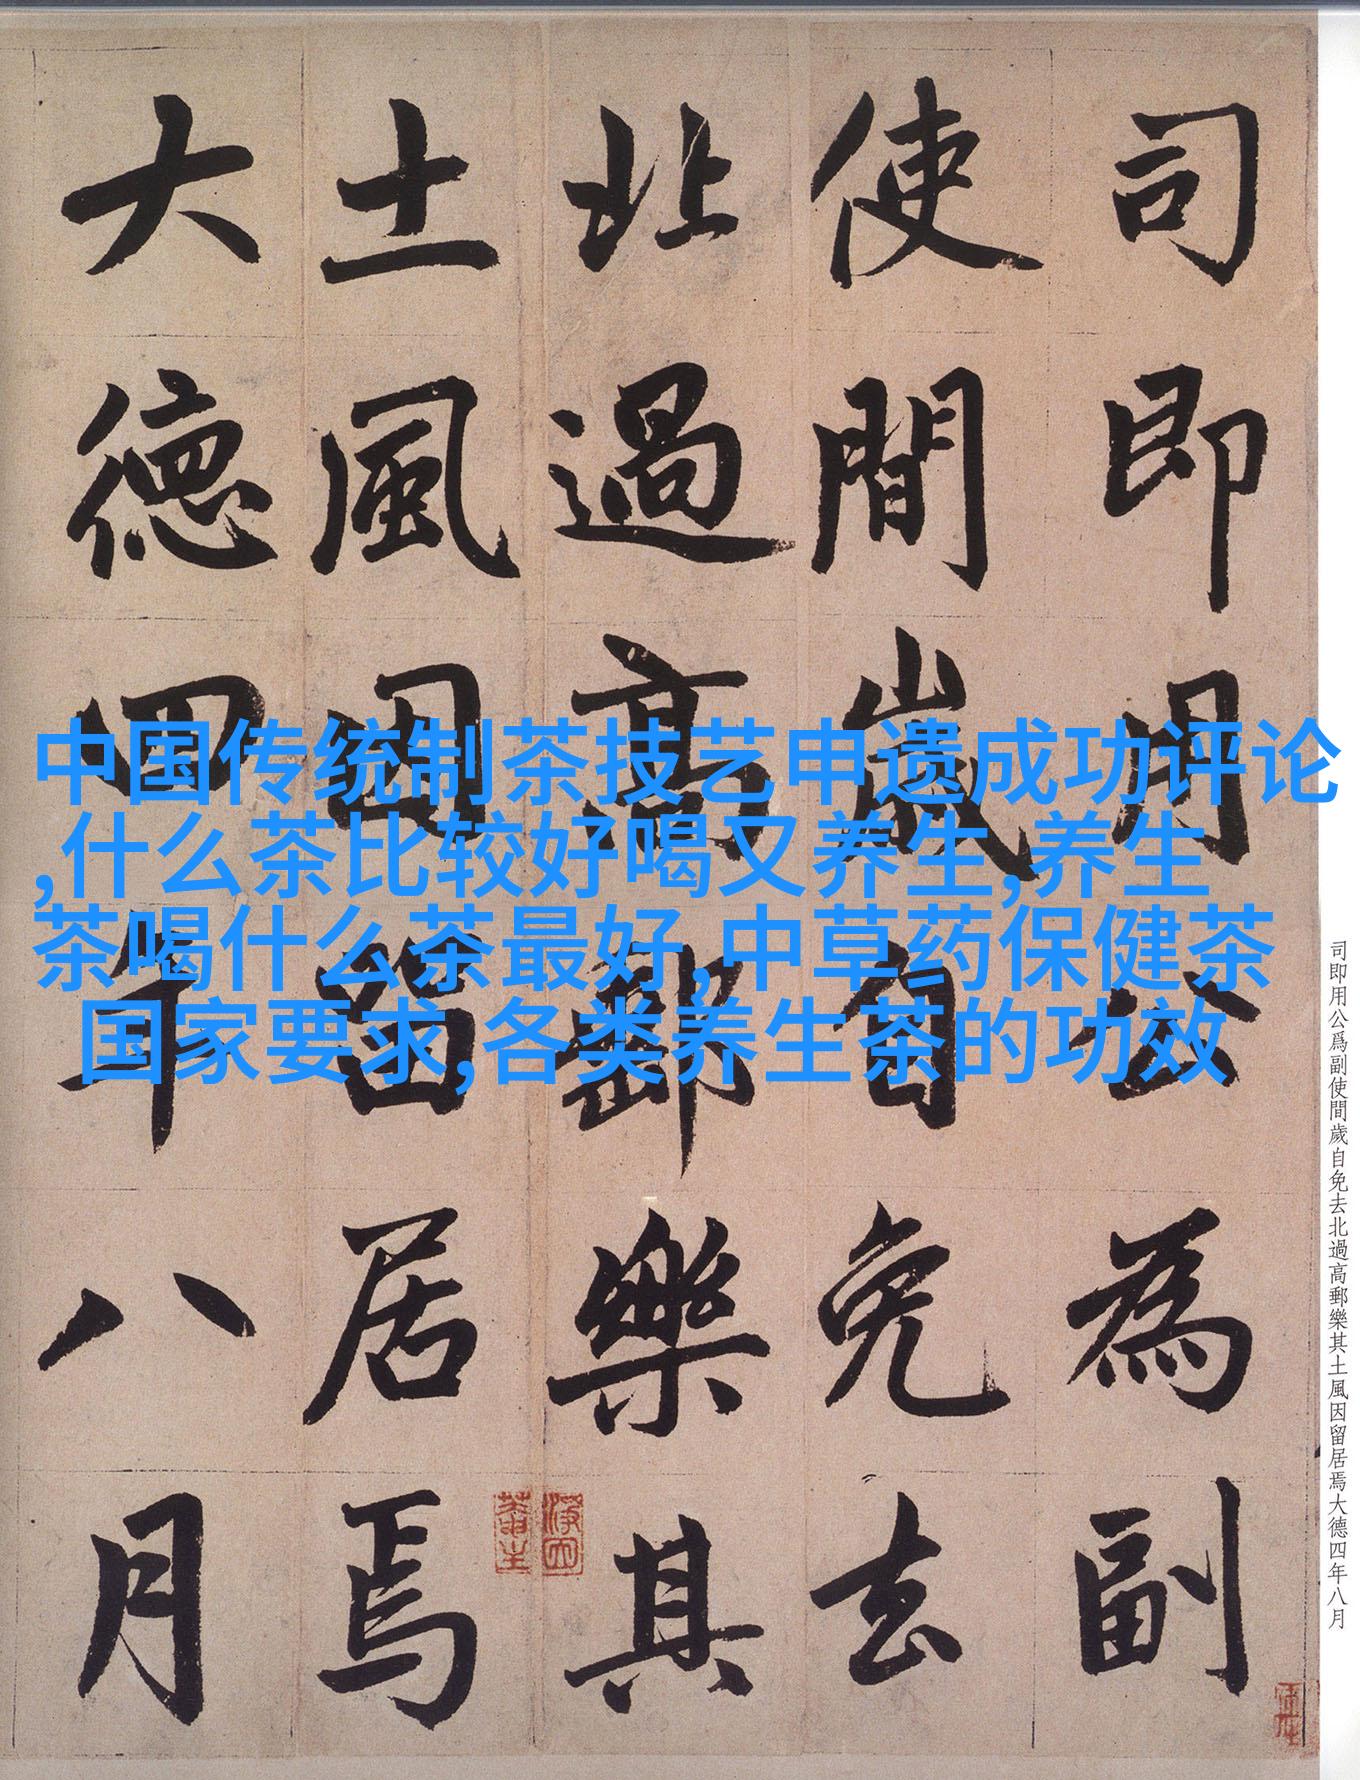 司即用公為副
使間歲自免去
北過高郵樂其
土風因留居焉
大德四年八月
中国传统制茶技艺申遗成功评论
,什么茶比较好喝又养生,养生
茶喝什么茶最好,中草药保健茶
国家要求,各类养生茶的功效
司即用公爲副使間歲自免去北過高郵樂其土風因留居焉大德四年八月